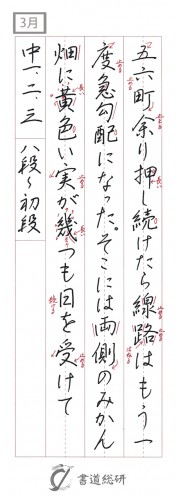 3月
五六町余り押し続けたら線路はもう一
度急勾配になった。そこには両側のみかん
畑に黄色い実が幾つも日を受けて
中一、二、三 八段〜初段
書道総研